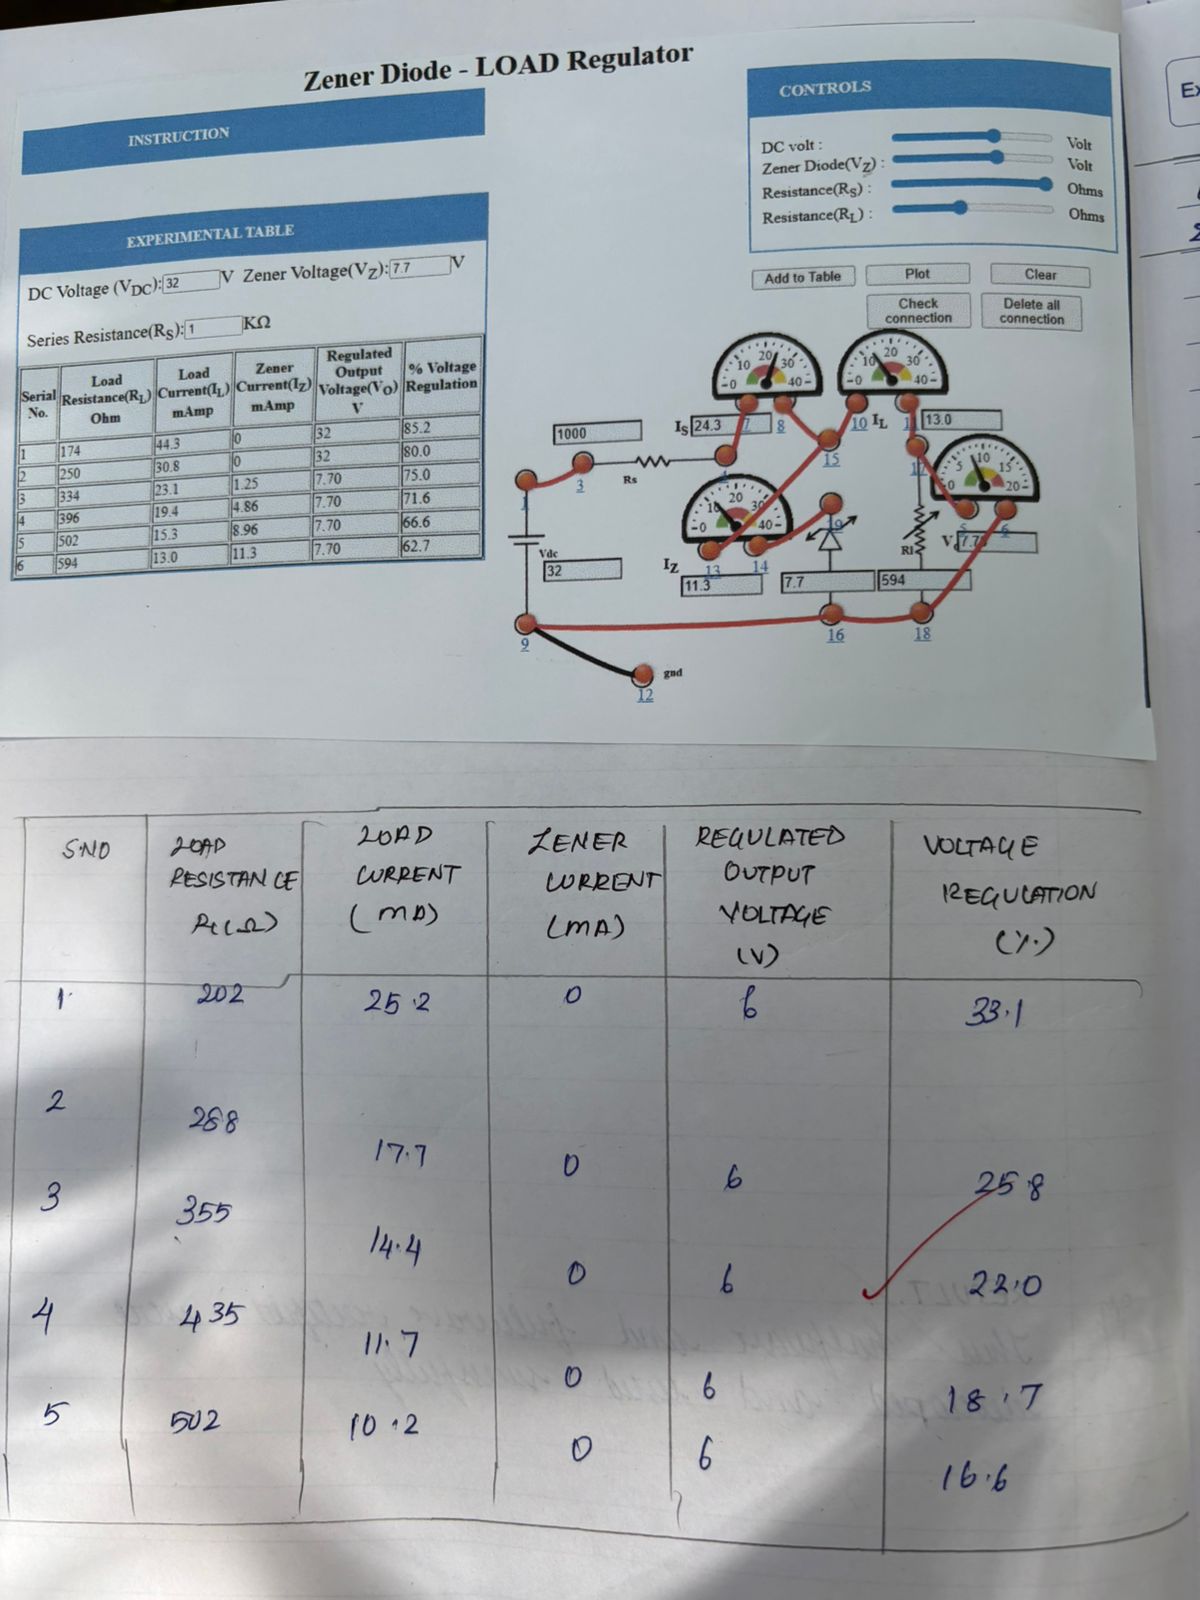 Zener Diode - LOAD Regulator
INSTRUCTION
EXPERIMENTAL TABLE
DC Voltage (VDC): 32 V Zener Voltage(VZ): 7.7 V
Series Resistance(RS): 1 KΩ
Serial No. Load Resistance(RL) Ohm Load Current(IL) mAmp Zener Current(IZ) mAmp Regulated Output Voltage(VO) V % Voltage Regulation
1 174 44.3 0 32 85.2
2 250 30.8 0 32 80.0
3 334 23.1 1.25 7.70 75.0
4 396 19.4 4.86 7.70 71.6
5 502 15.3 8.96 7.70 66.6
6 594 13.0 11.3 7.70 62.7
CONTROLS
DC volt : Volt
Zener Diode(VZ) : Volt
Resistance(RS) : Ohms
Resistance(RL) : Ohms
Add to Table Plot Clear
Check connection Delete all connection
0 10 20 30 40
0 10 20 30 40
IS 24.3 7 8
10 IL 11 13.0
1000
Rs
1 3 4 15 17
0 5 10 15 20
0 10 20 30 40
19
5 6
Vdc
32
IZ 13 14
11.3
7.7
Rl
594
V 7.7
9 16 18
gnd
12
Ex
S.NO LOAD RESISTANCE RL(Ω) LOAD CURRENT (mA) ZENER CURRENT (mA) REGULATED OUTPUT VOLTAGE (V) VOLTAGE REGULATION (%)
1. 202 25.2 0 6 33.1
2 288 17.7 0 6 25.8
3 355 14.4 0 6 22.0
4 435 11.7 0 6 18.7
5 502 10.2 0 6 16.6